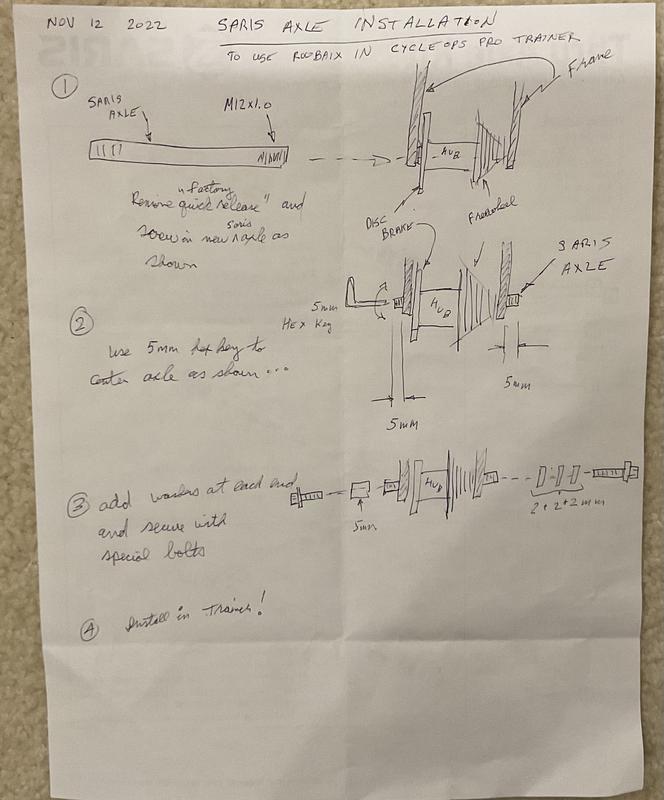 NOV 12 2022 SARIS AXLE INSTALLATION
TO USE ROUBAIX IN CYCLEOPS PRO TRAINER
1
SARIS
AXLE
M12X1.0
Frame
HUB
DISC
BRAKE
Freewheel
"factory
Remove quick release" and
saris
screw in new axle as
shown
2
5mm
HEX Key
HUB
SARIS
AXLE
use 5mm hex key to
center axle as shown...
5mm
5mm
3 add washers at each end
and secure with
special bolts
HUB
5mm
2+2+2mm
4 Install in Trainer!